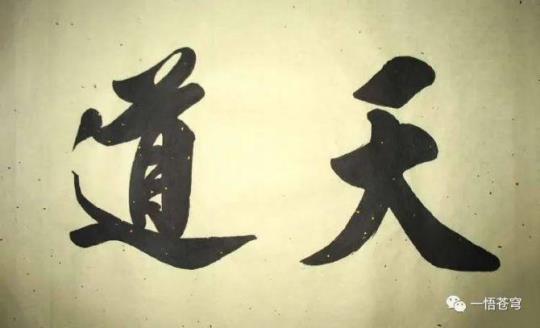 天道
一悟苍穹